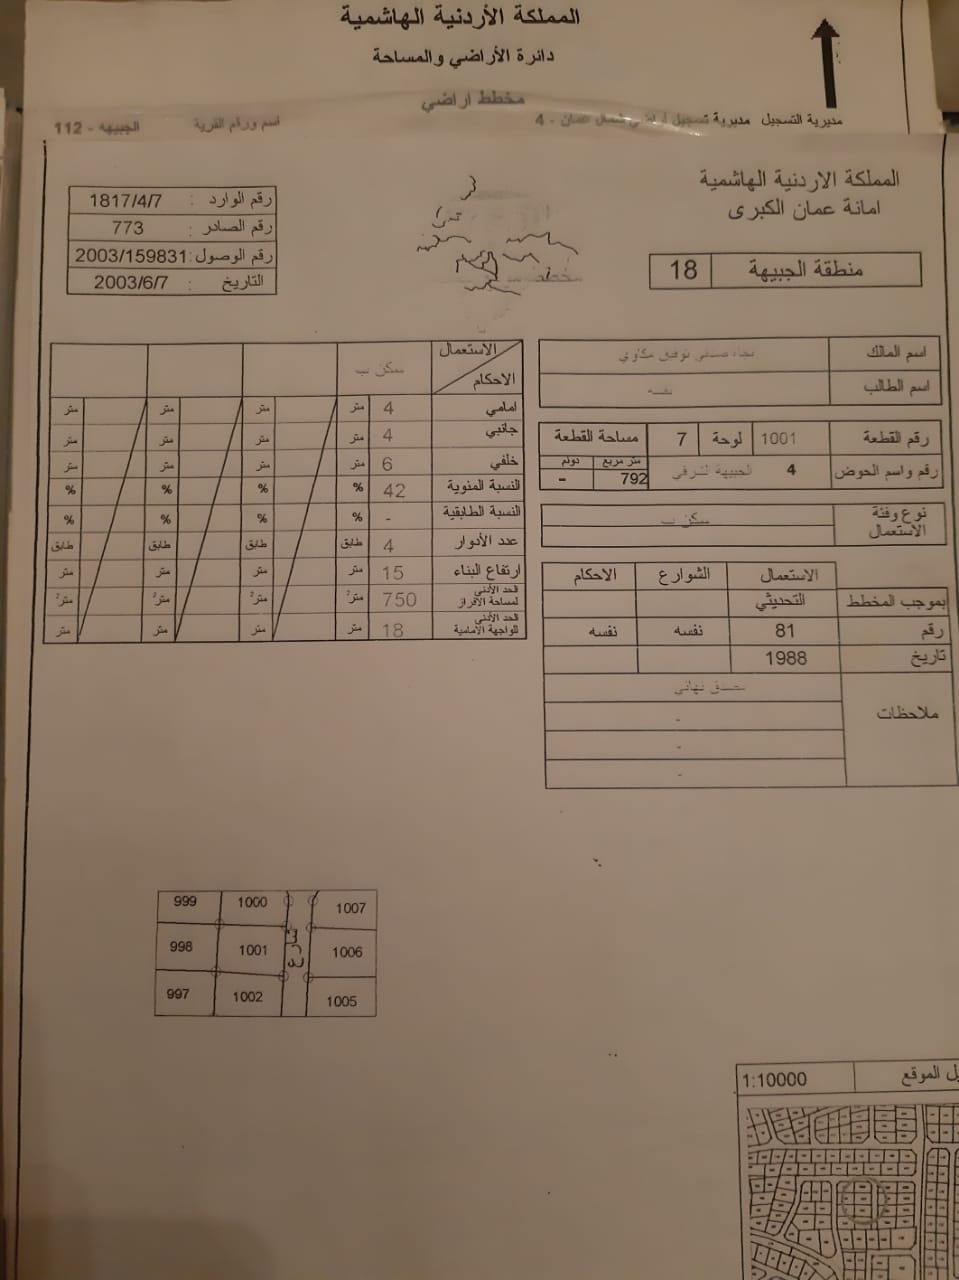 المملكة الأردنية الهاشمية
دائرة الأراضي والمساحة
مخطط اراضي
مديرية التسجيل مديرية تسجيل أراضي شمال عمان - 4
اسم ورقم القرية الجبيهه - 112
المملكة الاردنية الهاشمية
امانة عمان الكبرى
منطقة الجبيهة 18
رقم الوارد : 1817/4/7
رقم الصادر : 773
رقم الوصول: 2003/159831
التاريخ : 2003/6/7
اسم المالك توفيق مكاوي
اسم الطالب نفسه
رقم القطعة 1001 لوحة 7 مساحة القطعة
متر مربع دونم
رقم واسم الحوض 4 الجبيهة الشرقي 792 -
نوع وفئة الاستعمال سكن ب
الاستعمال الشوارع الاحكام
بموجب المخطط التحديثي
رقم 81 نفسه نفسه
تاريخ 1988
ملاحظات مصدق نهائي
-
-
-
الاستعمال سكن ب
الاحكام
امامي 4 متر متر متر متر
جانبي 4 متر متر متر متر
خلفي 6 متر متر متر متر
النسبة المئوية 42 % % % %
النسبة الطابقية - % % % %
عدد الأدوار 4 طابق طابق طابق طابق
ارتفاع البناء 15 متر متر متر متر
الحد الأدنى لمساحة الافراز 750 متر² متر² متر² متر²
الحد الأدنى للواجهة الامامية 18 متر متر متر متر
999 1000 1007
998 1001 شارع 1006
997 1002 1005
الموقع 1:10000